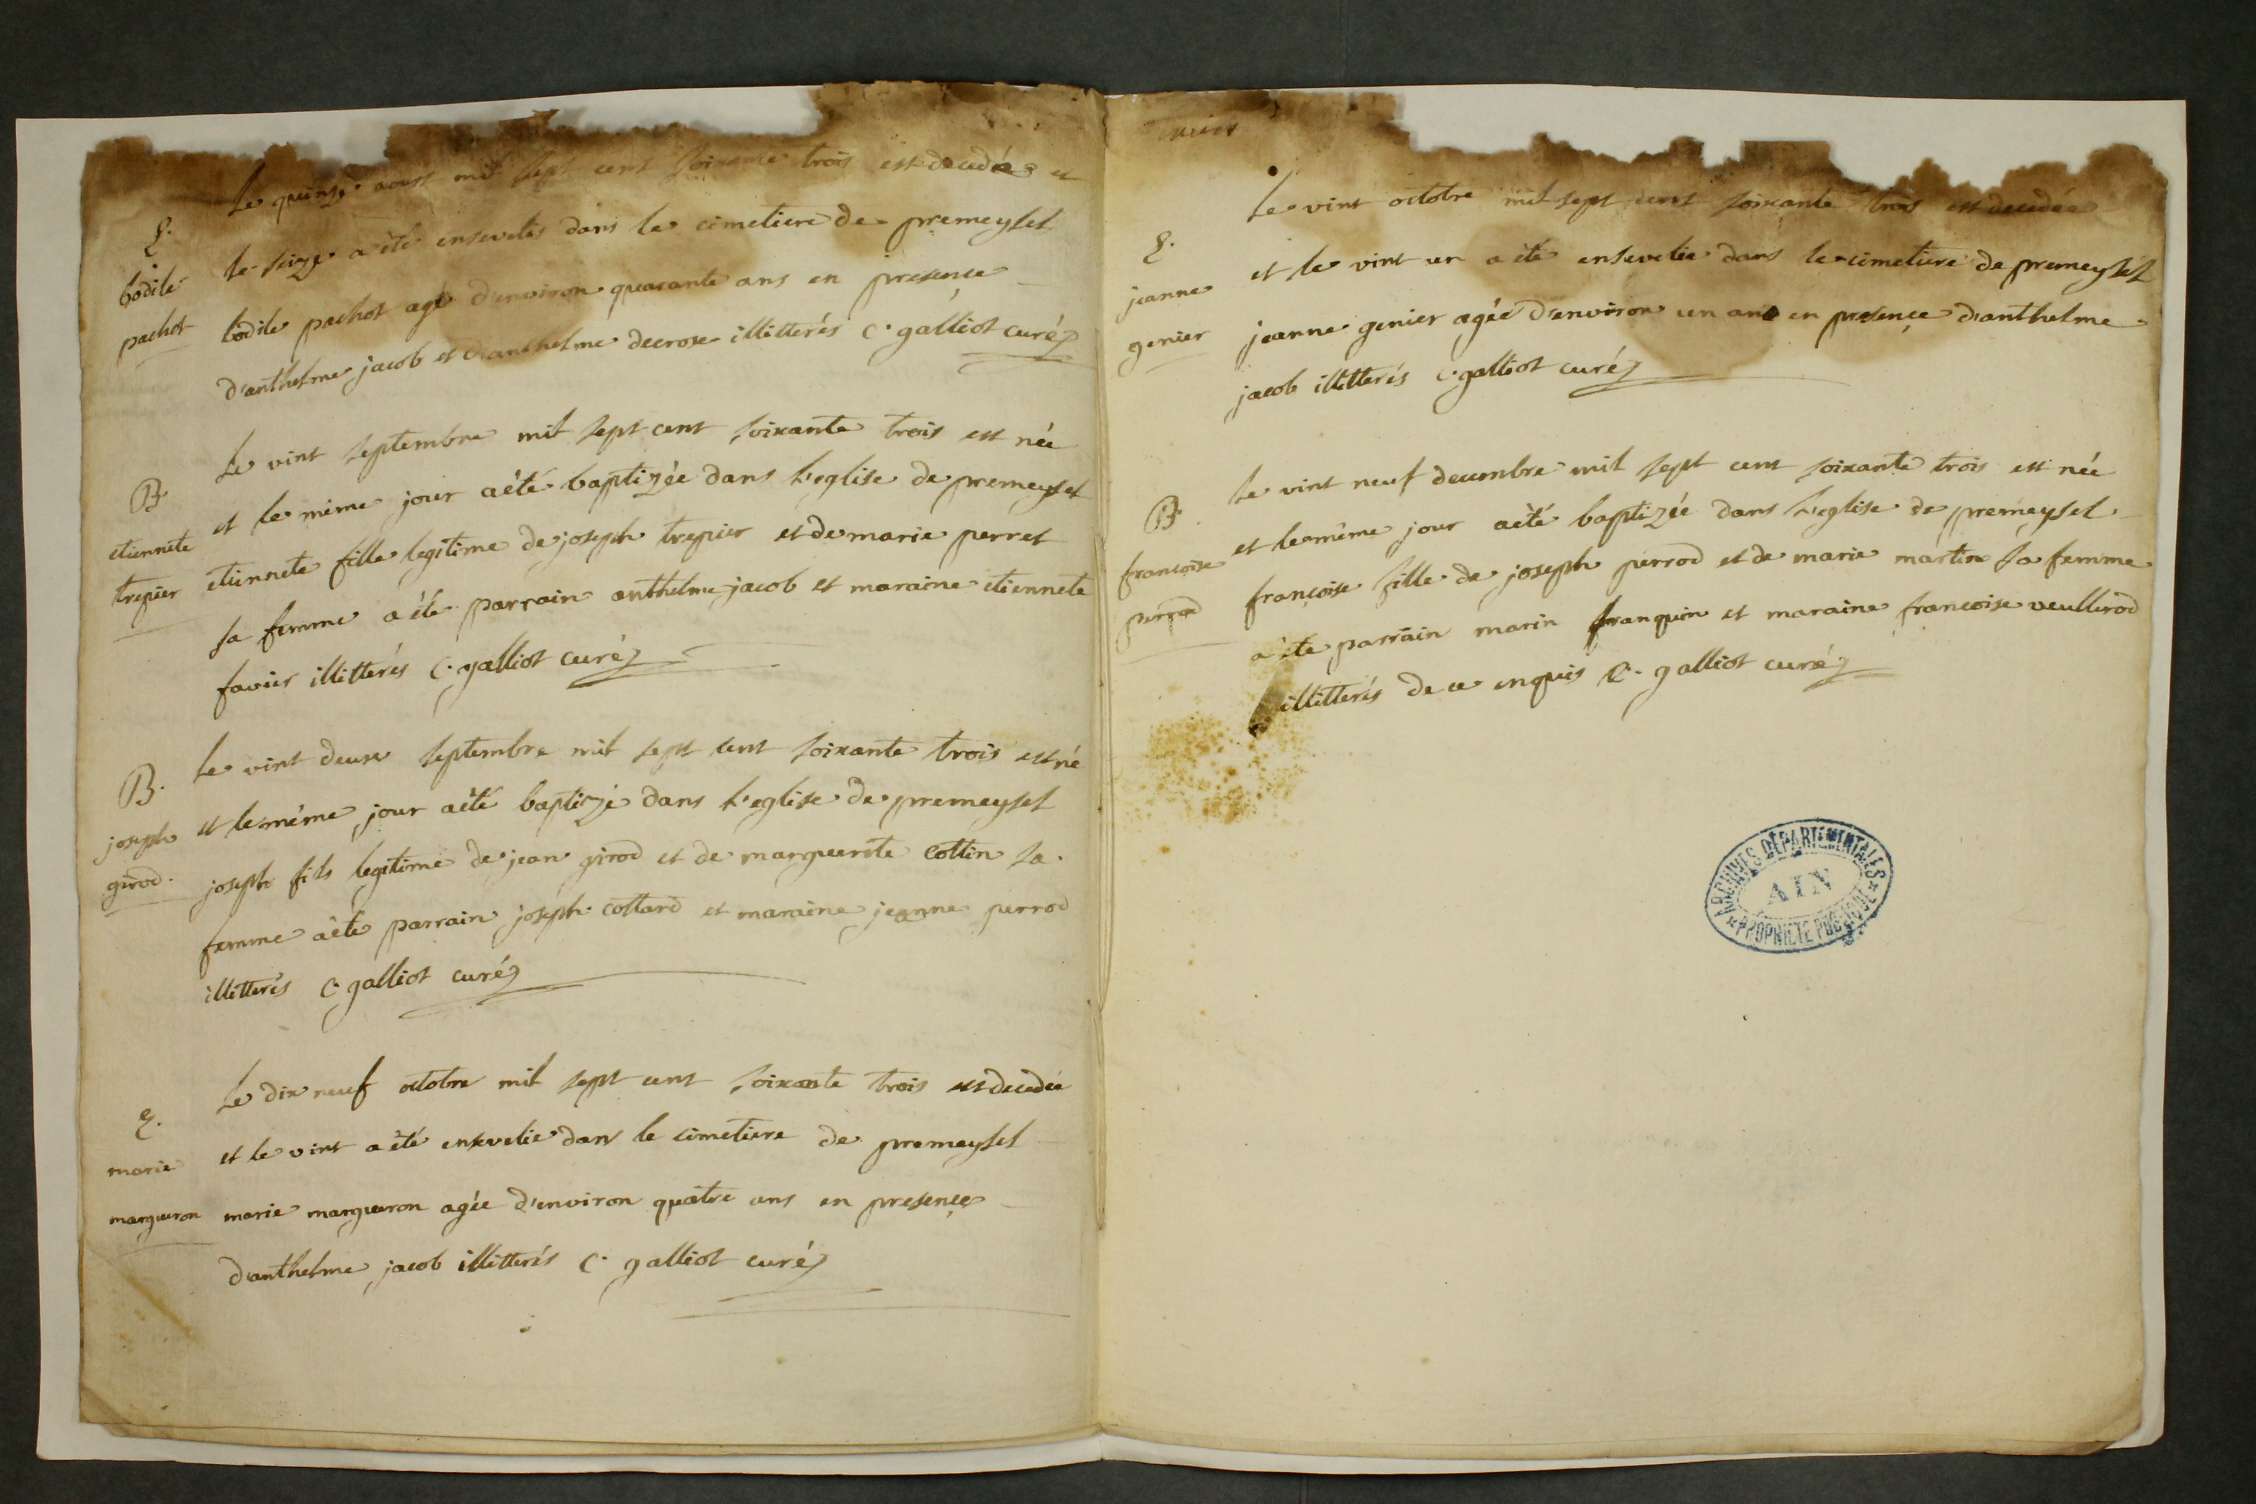 Le quinze aoust mil sept cent soixante trois est decedé et
E.
le seize a été enseveli dans le cimetiere de premeysel
pachot
pachot agé d'environ quarante ans en presence
d'anthelme jacob et d'anthelme decroze illitterés C. galliot curé
Le vint septembre mil sept cent soixante trois est née
B.
et le même jour a été baptizée dans l'eglise de premeysel
etiennete
trepier
etiennete fille legitime de joseph trepier et de marie perret
sa femme a été parrain anthelme jacob et maraine etiennete
favier illitterés C. galliot curé
Le vint deux septembre mil sept cent soixante trois est né
B.
joseph
et le même jour a été baptizé dans l'eglise de premeysel
girod.
joseph fils legitime de jean girod et de marguerite Cottin sa
femme a été parrain joseph cottard et maraine jeanne perrod
illitterés C. galliot curé
Le dix neuf octobre mil sept cent soixante trois est decedée
E.
marie
et le vint a été ensevelie dans le cimetiere de premeysel
margueron
marie margueron agée d'environ quatre ans en presence
d'anthelme jacob illitterés C. galliot curé
Le vint octobre mil sept cent soixante trois est decedée
E.
jeanne
et le vint un a été ensevelie dans le cimetiere de premeysel
genier
jeanne genier agée d'environ un an en presence d'anthelme
jacob illitterés C. galliot curé
Le vint neuf decembre mil sept cent soixante trois est née
B.
et le même jour a été baptizée dans l'eglise de premeysel
francoise
perrod
françoise fille de joseph perrod et de marie martin sa femme
a été parrain marin franquin et maraine francoise veullerod
illitterés de ce enquis C. galliot curé
ARCHIVES DÉPARTEMENTALES
AIN
PROPRIÉTÉ PUBLIQUE